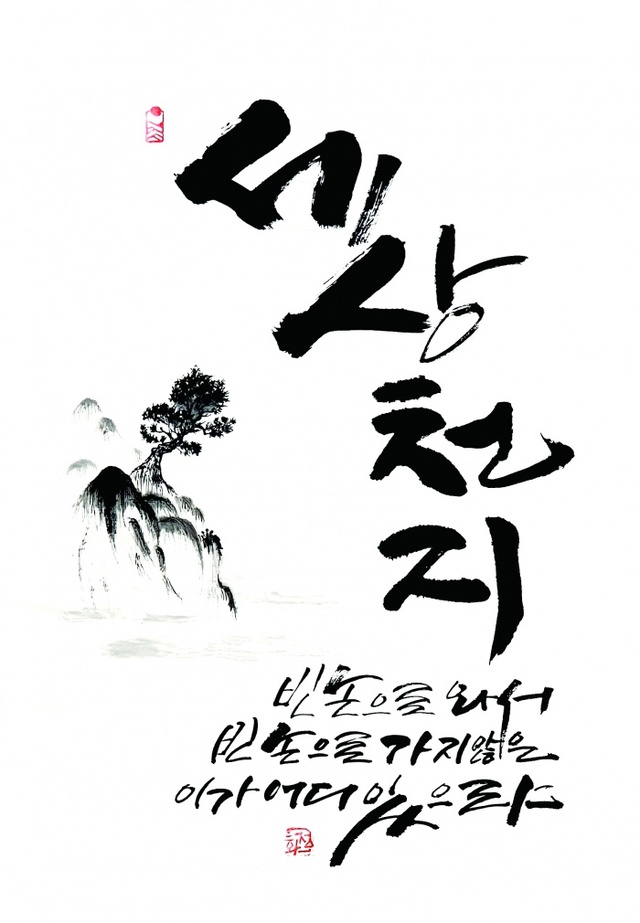 세상
천지
빈손으로 와서
빈손으로 가지않은
이가 어디 있으랴